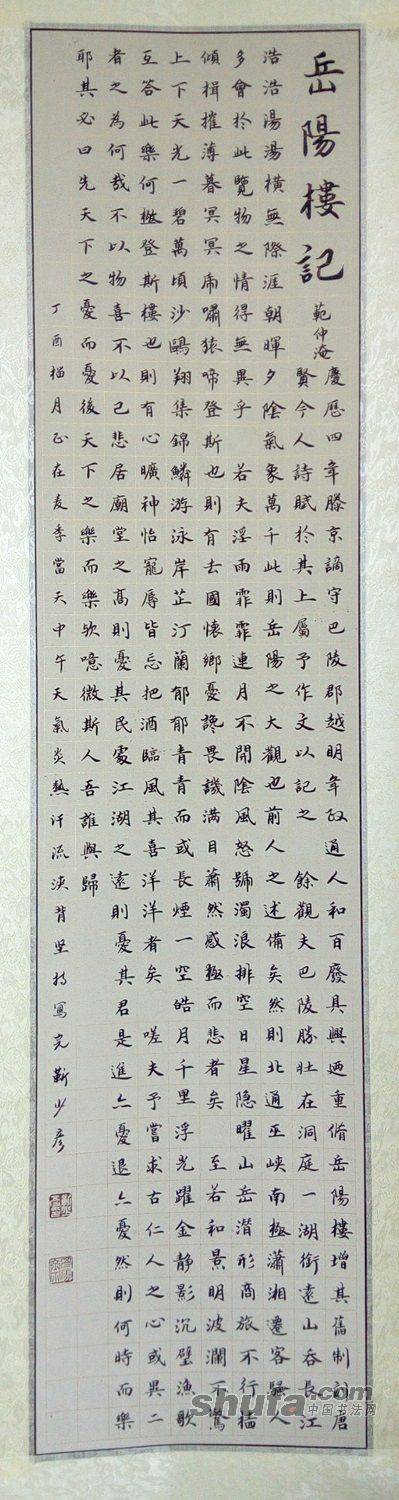 岳陽樓記
範仲淹
慶歷四年滕京謫守巴陵郡越明年政通人和百廢具興迺重脩岳陽樓增其舊制刻唐
賢今人詩賦於其上屬予作文以記之 餘觀夫巴陵勝壯在洞庭一湖銜遠山吞長江
浩浩湯湯橫無際涯朝暉夕陰氣象萬千此則岳陽之大觀也前人之述備矣然則北通巫峽南極瀟湘遷客騷人
多會於此覽物之情得無異乎 若夫淫雨霏霏連月不開陰風怒號濁浪排空日星隱曜山岳潛形商旅不行檣
傾楫摧薄暮冥冥虎嘯猿啼登斯也則有去國懷鄉憂讒畏譏滿目蕭然感極而悲者矣 至若和景明波瀾不驚
上下天光一碧萬頃沙鷗翔集錦鱗游泳岸芷汀蘭郁郁青青而或長煙一空皓月千里浮光躍金靜影沉璧漁歌
互答此樂何極登斯樓也則有心曠神怡寵辱皆忘把酒臨風其喜洋洋者矣 嗟夫予嘗求古仁人之心或異二
者之為何哉不以物喜不以己悲居廟堂之高則憂其民處江湖之遠則憂其君是進亦憂退亦憂然則何時而樂
耶其必曰先天下之憂而憂後天下之樂而樂歟噫微斯人吾誰與歸
丁酉榴月正在麦季當天中午天氣炎熱汗流浹背坚持寫完靳少彥
shufa.com
中国书法网